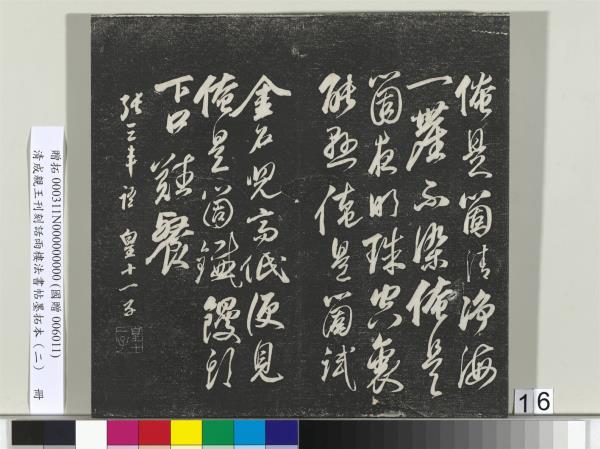 俺是箇清淨海
一塵不染俺是
箇夜明珠空裏
能懸俺是箇試
金石兒高低便見
俺是箇鐵饅頭
下口難餐
張三丰語 皇十一子
皇十一子
贈拓 000311N000000000 (國贈 006011)
清成親王刊刻話雨樓法書帖墨拓本(二) 冊
16